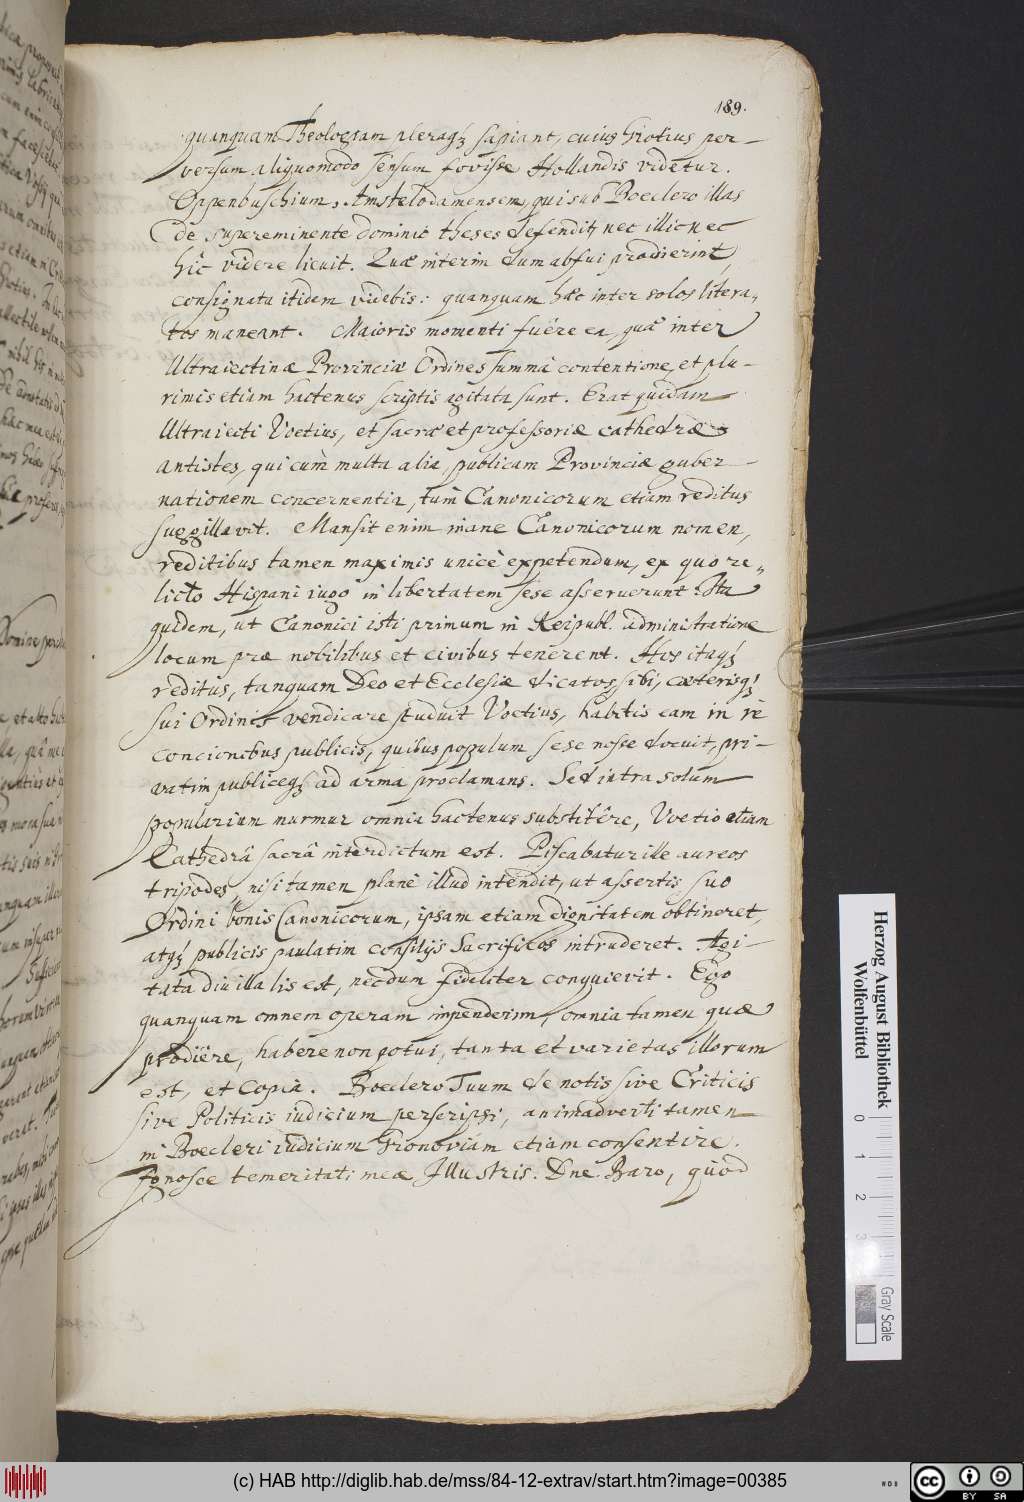 189.
quanquam Theologiam pleraq₃ sapiant, cuius Grotius per-
versum aliquomodo sensum fovisse Hollandis videtur.
Oppenbuschium, Amstelodamensem, qui sub Boeclero illas
de supereminente dominio theses defendit, nec illic nec
hîc videre licuit. Quæ interim dum abfui prodierint,
consignata itidem videbis: quanquam hæc inter solos litera„
tos maneant. Maioris momenti fuêre ea, quæ inter
Ultraiectinæ Provinciæ Ordines summâ contentione, et plu-
rimis etiam hactenus scriptis agitata sunt. Erat quidam
Ultraiecti Voetius, et sacræ et professoriæ cathedræ
antistes, qui cùm multa alia, publicam Provinciæ guber-
nationem concernentia, tùm Canonicorum etiam reditus
suggillavit. Mansit enim inane Canonicorum nomen,
reditibus tamen maximis unicè expetendum, ex quo re„
licto Hispani iugo in libertatem sese asseruerunt: Ita
quidem, ut Canonici isti primum in Reipubl. administratione
locum præ nobilibus et civibus tenêrent. Hos itaq₃
reditus, tanquam Deo et Ecclesiæ dicatos, sibi, cæterisq₃
sui Ordinis vendicare studuit Voetius, habitis eam in rē
concionibus publicis, quibus populum sese nosse docuit, pri-
vatim publiceq₃ ad arma proclamans. Sed intra solum
popularium murmur omnia hactenus substitêre, Voetio etiam
Cathedrâ sacrâ interdictum est. Piscabatur ille aureos
tripodes, nisi tamen planè illud intendit, ut assertis suo
Ordini bonis Canonicorum, ipsam etiam dignitatem obtineret,
atq₃ publicis paulatim consilijs Sacrificos intruderet. Agi-
tata diu illa lis est, necdum fideliter conquievit. Ego
quanquam omnem operam impenderim, omnia tamen quæ
prodiêre, habere non potui, tanta et varietas illorum
est, et copia. Boeclero Tuum de notis sive Criticis
sive Politicis iudicium perscripsi, animadverti tamen
in Boecleri iudicium Gronovium etiam consentire.
Ignosce temeritati meæ Illustris. Dne. Baro, quod
Herzog August Bibliothek
Wolfenbüttel
0 1 2 3
Gray Scale
(c) HAB http://diglib.hab.de/mss/84-12-extrav/start.htm?image=00385
cc BY SA